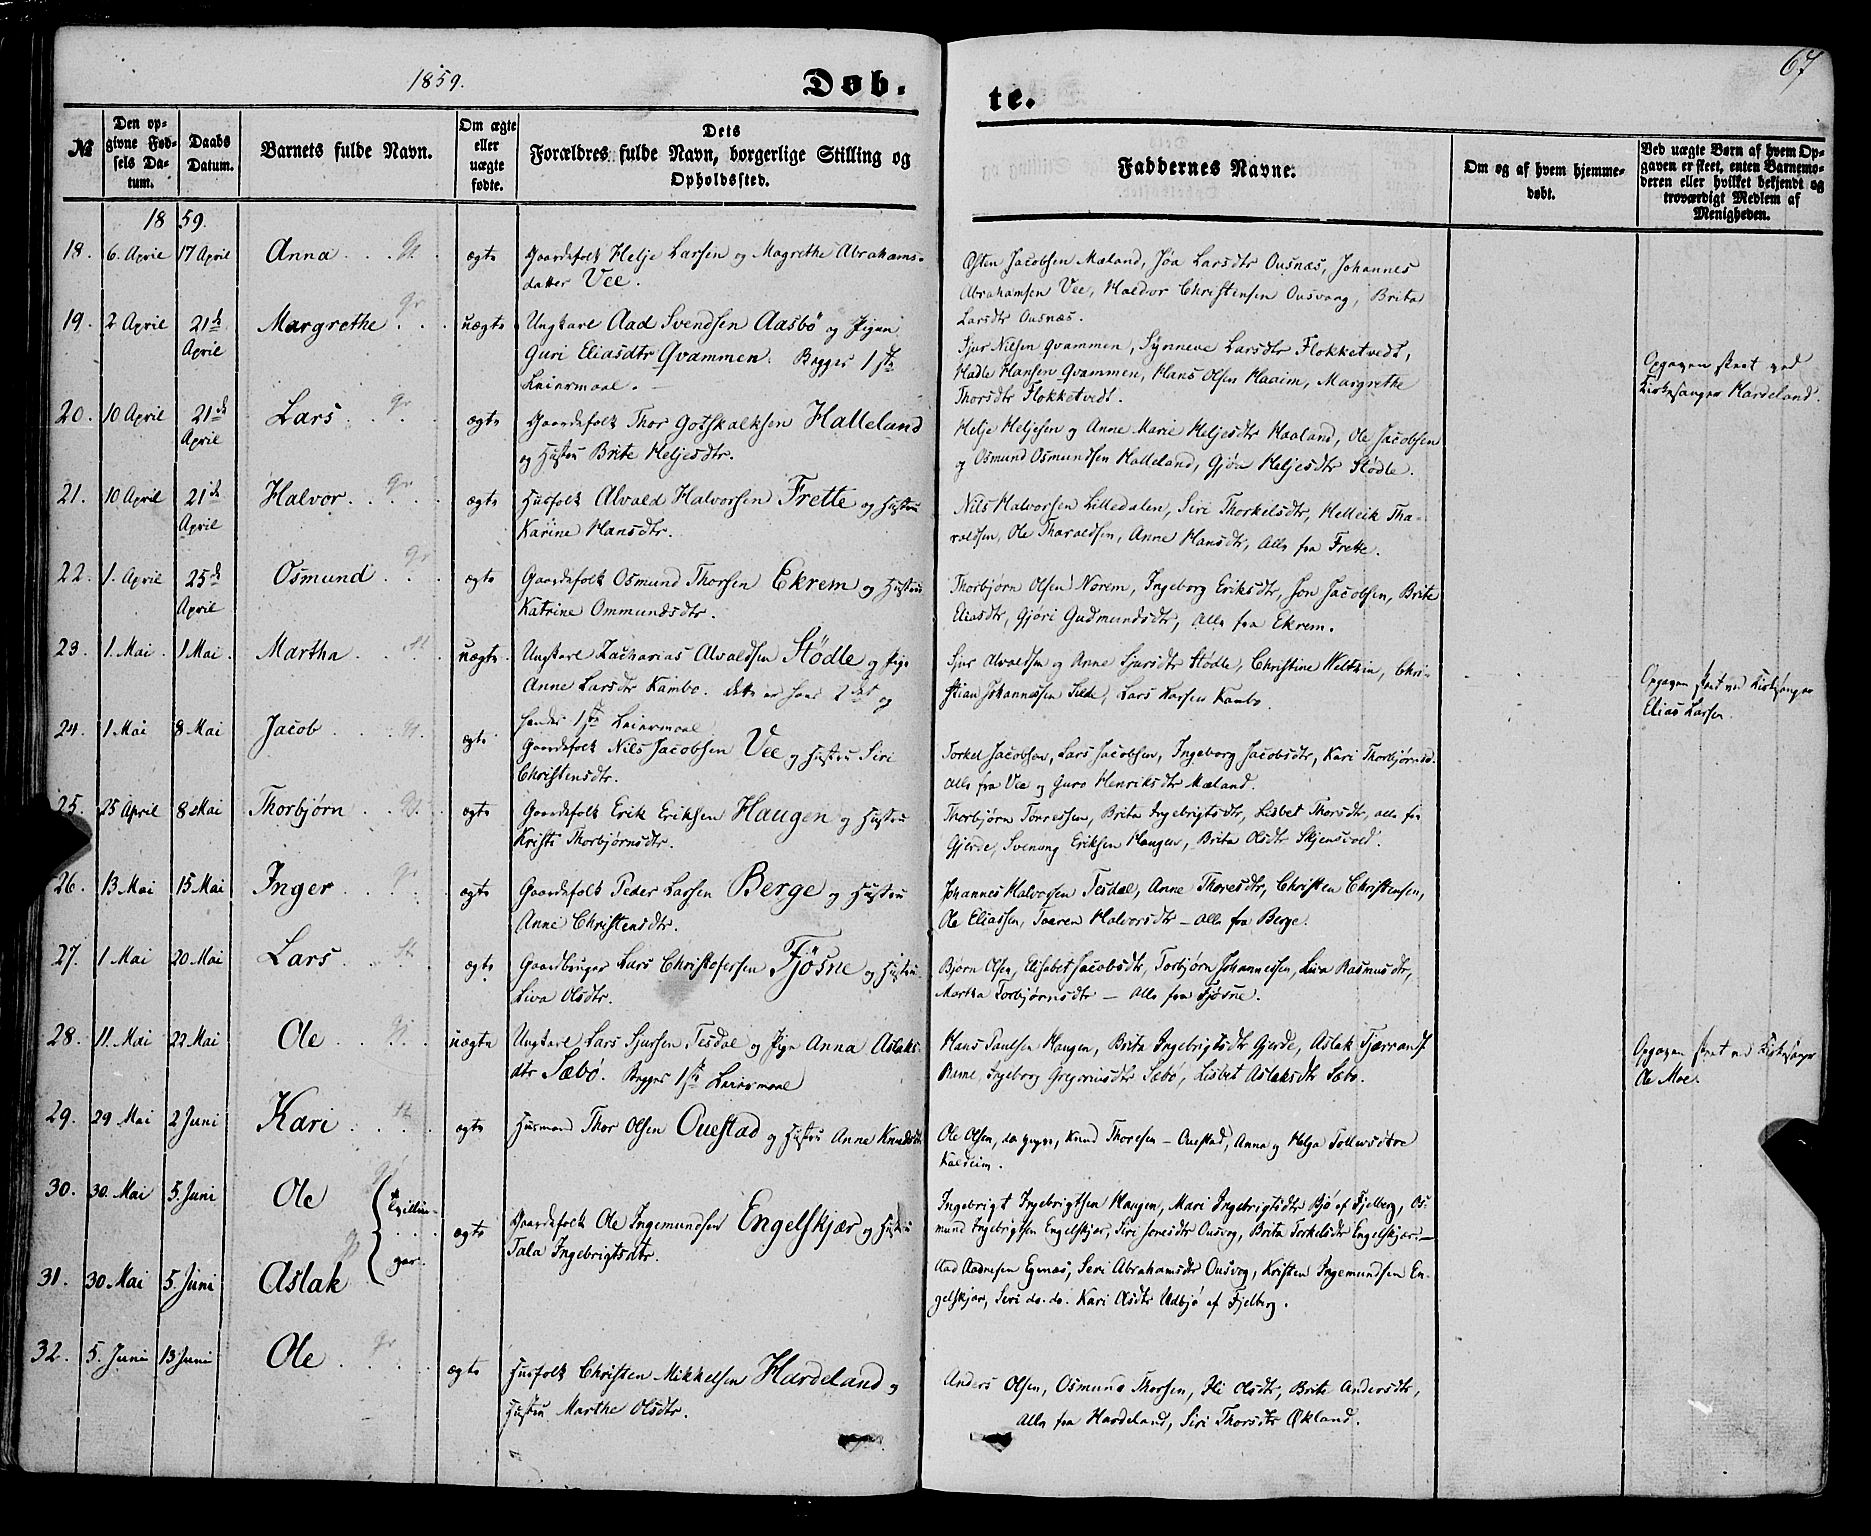 1859.
Døb.
te.
67
№
Den op-
givne Fød-
sels Da-
tum.
Daabs
Datum.
Barnets fulde Navn.
Om ægte
eller
uægte
fødte.
Dets
Forældres fulde Navn, borgerlige Stilling og
Opholdssted.
Faddernes Navne.
Om og af hvem hjemme-
døbt.
Ved uægte Børn af hvem Op-
gaven er skeet, enten Barnemo-
deren eller hvilket bekjendt og
troværdigt Medlem af
Menigheden.
18 59.
18. 6. April 17 April Anna ægte Gaardefolk Helje Larsen og Magrethe Abrahams-
datter Vee.
Østen Jacobsen Mæland, Joa Larsdtr Ousnæs, Johannes
Abrahamsen Vee, Haldor Christensen Ousvaag, Brita
Larsdtr Ousnæs.
19. 2 April 21de April Margrethe uægte Ungkarl Aad Svendsen Aasbø og Pigen
Guri Eliasdtr Qvammen. Begges 1ste
Leiermaal.
Sjur Nilsen Qvammen, Synneve Larsdtr Flokketvedt,
Hadle Hansen Qvammen, Hans Olsen Haaim, Margrethe
Thorsdtr Flokketvedt.
Opgaven skeet ved
Kirkesanger Hardeland.
20. 10 April 21de April Lars ægte Gaardefolk Thor Gotskalksen Halleland
og Hustru Brite Heljesdtr.
Helje Heljesen og Anne Marie Heljesdtr Haaland, Ole Jacobsen
og Osmund Osmundsen Halleland, Gjøa Heljesdtr Stødle.
21. 10 April 21de April Halvor ægte Husfolk Alvald Halvorsen Frette og Hustru
Karine Hansdtr.
Nils Halvorsen Lilledalen, Siri Thorkelsdtr, Helleik Tha-
raldsen, Ole Tharaldsen, Anne Hansdtr, Alle fra Frette.
22. 1. April 25de April Osmund ægte Gaardefolk Osmund Thorsen Ekrem og Hustru
Katrine Ommundsdtr.
Thorbjørn Olsen Norem, Ingeborg Eriksdtr, Jon Jacobsen, Brite
Eliasdtr, Gjøri Gudmundsdtr, Alle fra Ekrem.
23. 1. Mai 1. Mai Martha uægte Ungkarl Zacharias Alvaldsen Stødle og Pige
Anne Larsdtr Kambo. Dette er hans 2det og
hendes 1ste Leiermaal
Sjur Alvaldsen og Anne Sjursdtr Stødle, Christine Weltzin, Chri-
stian Johannesen Silde, Lars Larsen Kambo.
Opgaven skeet ved Kirkesanger
Elias Larsen.
24. 1 Mai 8 Mai Jacob ægte Gaardefolk Nils Jacobsen Vee og Hustru Siri
Christensdtr.
Torkel Jacobsen, Lars Jacobsen, Ingeborg Jacobsdtr, Kari Thorbjørnsd.
Alle fra Vee og Guro Henriksdtr Mæland.
25. 25 April 8 Mai Thorbjørn ægte Gaardefolk Erik Eriksen Haugen og Hustru
Kristi Thorbjørnsdtr.
Thorbjørn Torressen, Brita Ingebrigtsdtr, Lisbet Thorsdtr, alle fra
Gjerde, Svenung Eriksen Haugen, Brita Olsdtr Skjensvold.
26. 13 Mai 15 Mai Inger ægte Gaardefolk Peder Larsen Berge og Hustru
Anne Christensdtr.
Johannes Halvorsen Tesdal, Anne Thoresdtr, Christen Christensen,
Ole Eliassen, Taaren Halvorsdtr – Alle fra Berge.
27. 1 Mai 20 Mai Lars ægte Gaardbruger Lars Christofersen Fjøsne og Hustru
Liva Olsdtr.
Bjørn Olsen, Elisabet Jacobsdtr, Torbjørn Johannessen, Liva Rasmusdtr,
Martha Torbjørnsdtr – Alle fra Fjøsne.
28. 11. Mai 22 Mai Ole uægte Ungkarl Lars Sjursen Tesdal og Pige Anna Aslaks-
dtr Sæbø. Begges 1ste Leiermaal
Hans Paulsen Haugen, Brita Ingebrigtsdtr Gjerde, Aslak
Rame, Ingeborg Sæbø, Lisbet Aslaksdtr Sæbø.
Opgaven skeet ved Kirkesanger
Ole Moe.
29. 29 Mai 2 Juni Kari ægte Husmand Thor Olsen Ouestad og Hustru Anne Knudsdtr
Ole Olsen, Knud Thoresen – Ouestad, Anna og Helga Tollevsdtre
Kaldeim.
30. 30. Mai 5. Juni Ole
Tvillin-
ger
ægte Gaardefolk Ole Ingemundsen Engelskjær og Hustru
Tala Ingebrigtsdtr.
Ingebrigt Ingebrigtsen Haugen, Mari Ingebrigtsdtr Bjø af Fjelberg, Os-
mund Ingebrigtsen Engelskjær, Siri Jonesdtr Ousvog, Brita Torkelsdtr Engelskjær. –
31. 30 Mai 5. Juni Aslak
Aad Aadnesen Egenæs, Seri Abrahamsdtr Ousvog, Kristen Ingemundsen En-
gelskjær, Seri do. do. Kari Olsdtr Udbjø af Fjelberg.
32. 5. Juni 13 Juni Ole ægte Husfolk Christen Mikkelsen Hardeland og
Hustru Marthe Olsdtr.
Anders Olsen, Osmund Thorsen, Eli Olsdtr, Brite Andersdtr,
Alle fra Hardeland, Siri Thorsdtr Økland.